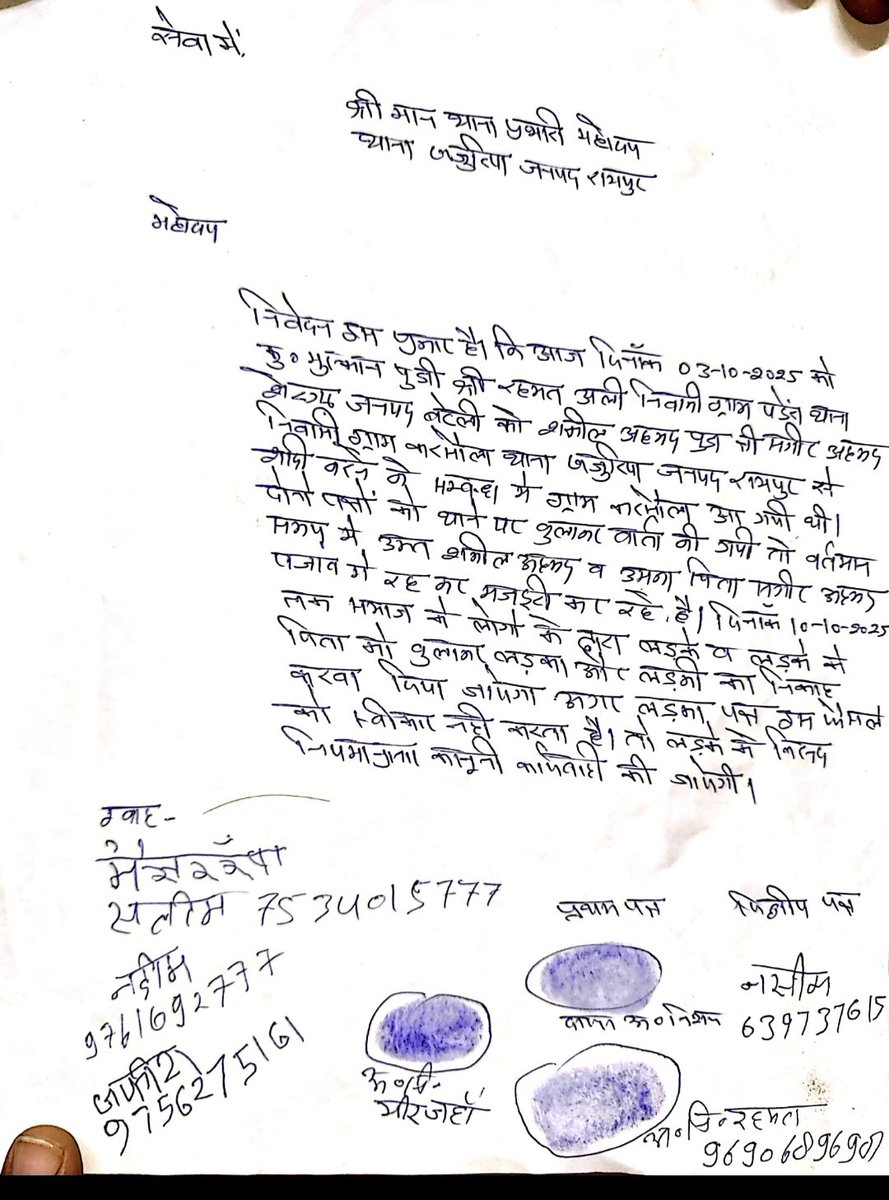 सेवा में,
श्री मान थाना प्रभारी महोदय
थाना जनपद रामपुर
महोदय
निवेदन इस प्रकार है। कि आज दिनाँक 03-10-2025 को
कु० मुस्कान पुत्री श्री रहमत अली निवासी ग्राम थाना
जनपद बरेली को शमील अहमद पुत्र श्री सगीर अहमद
निवासी ग्राम करमौला थाना जनपद रामपुर से
शादी करने के सम्बन्ध में ग्राम करमौला आ गयी थी।
दोनो पक्षों को थाने पर बुलाकर वार्ता की गयी तो वर्तमान
समय में उक्त शमील अहमद व उसका पिता सगीर अहमद
पंजाव में रह कर मजदूरी कर रहे है। दिनाँक 10-10-2025
तक समाज के लोगो के द्वारा लडके व लड़के के
पिता को बुलाकर लड़का और लड़की का निकाह
करवा दिया जायेगा अगर लड़का पक्ष इस फैसले
को स्वीकार नही करता है। तो लड़के के विरुद्ध
नियमानुसार कानूनी कार्यवाही की जायेगी।
गवाह-
सलीम 7534015777
प्रथम पक्ष द्वितीय पक्ष
नदीम
9761692777
नसीम
639737615
9756275161
अ०नि०
अ०नि० रहमत
9690689690